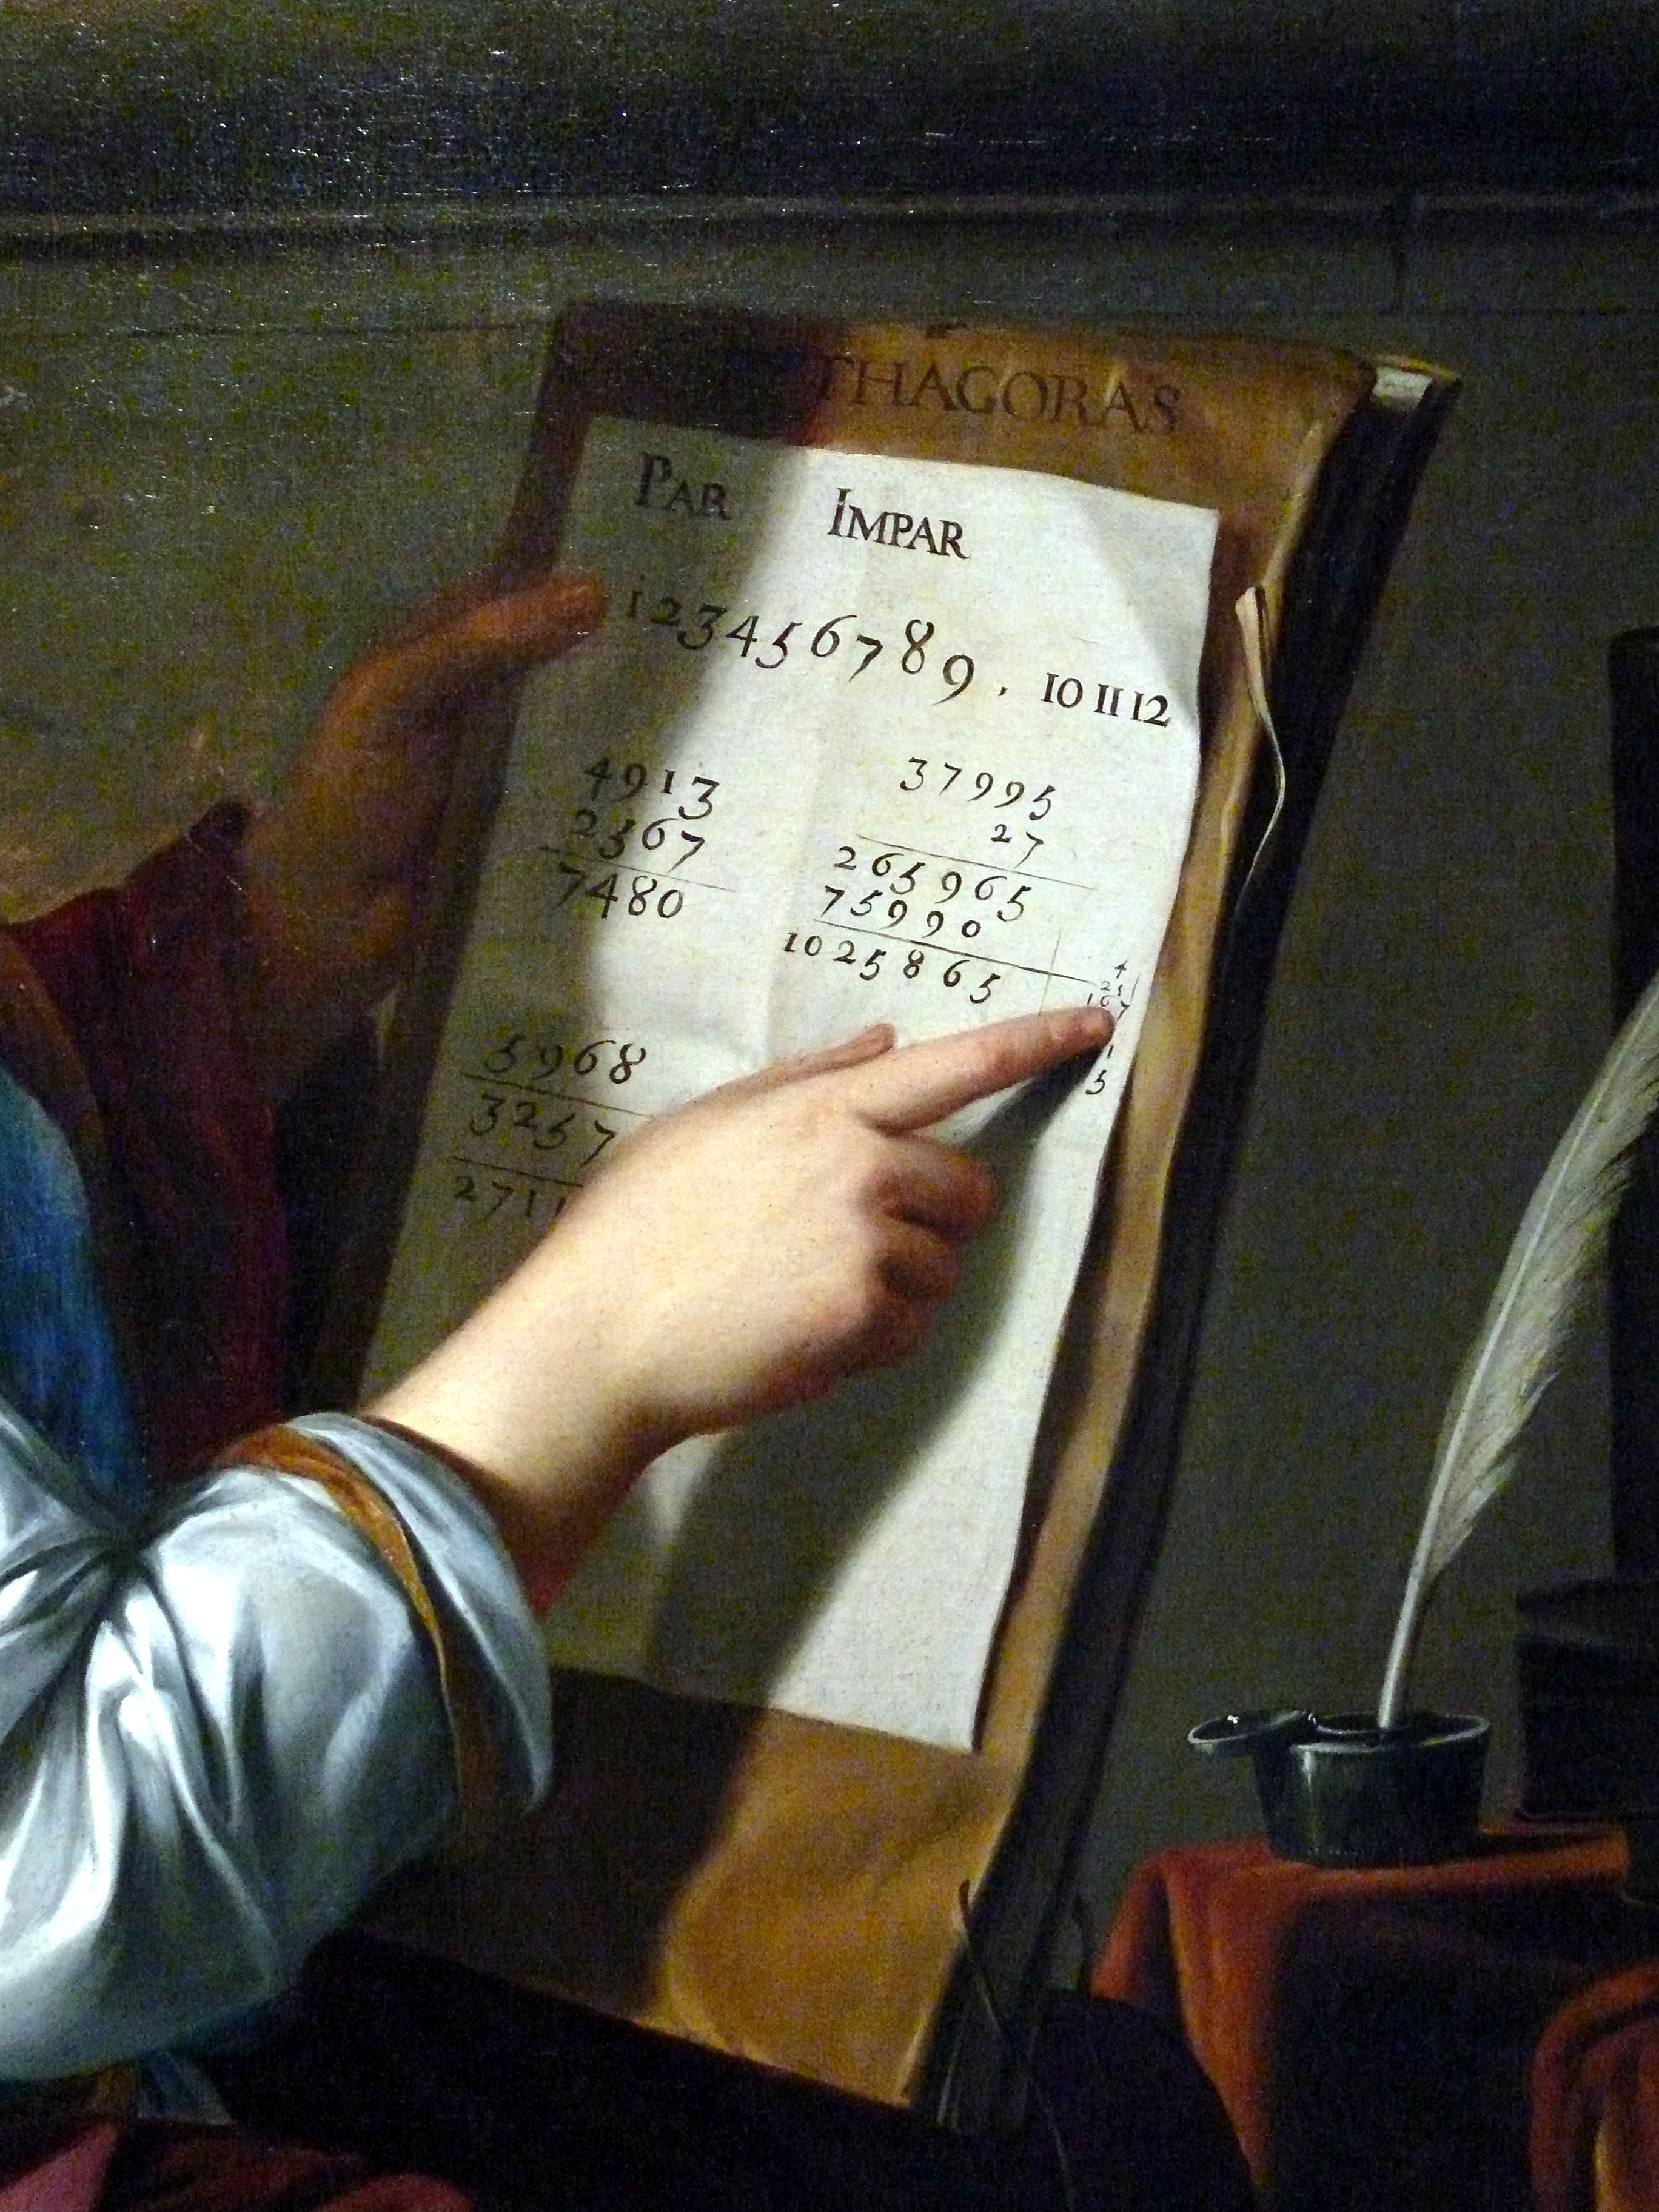 THAGORAS
PAR IMPAR
1 2 3 4 5 6 7 8 9 , 10 11 12
4913
2567
7480
37995
27
265965
75990
1025865
5968
3257
2711
4
25
167
1
5